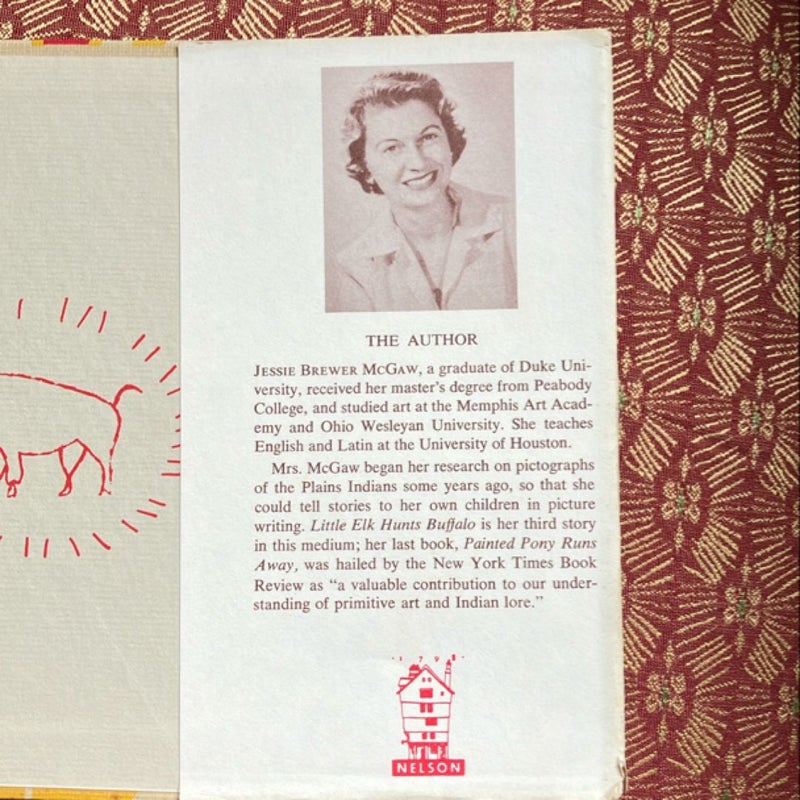 THE AUTHOR
JESSIE BREWER MCGAW, a graduate of Duke Uni-
versity, received her master's degree from Peabody
College, and studied art at the Memphis Art Acad-
emy and Ohio Wesleyan University. She teaches
English and Latin at the University of Houston.
Mrs. McGaw began her research on pictographs
of the Plains Indians some years ago, so that she
could tell stories to her own children in picture
writing. Little Elk Hunts Buffalo is her third story
in this medium; her last book, Painted Pony Runs
Away, was hailed by the New York Times Book
Review as “a valuable contribution to our under-
standing of primitive art and Indian lore.”
· 1 7 9 8 ·
NELSON